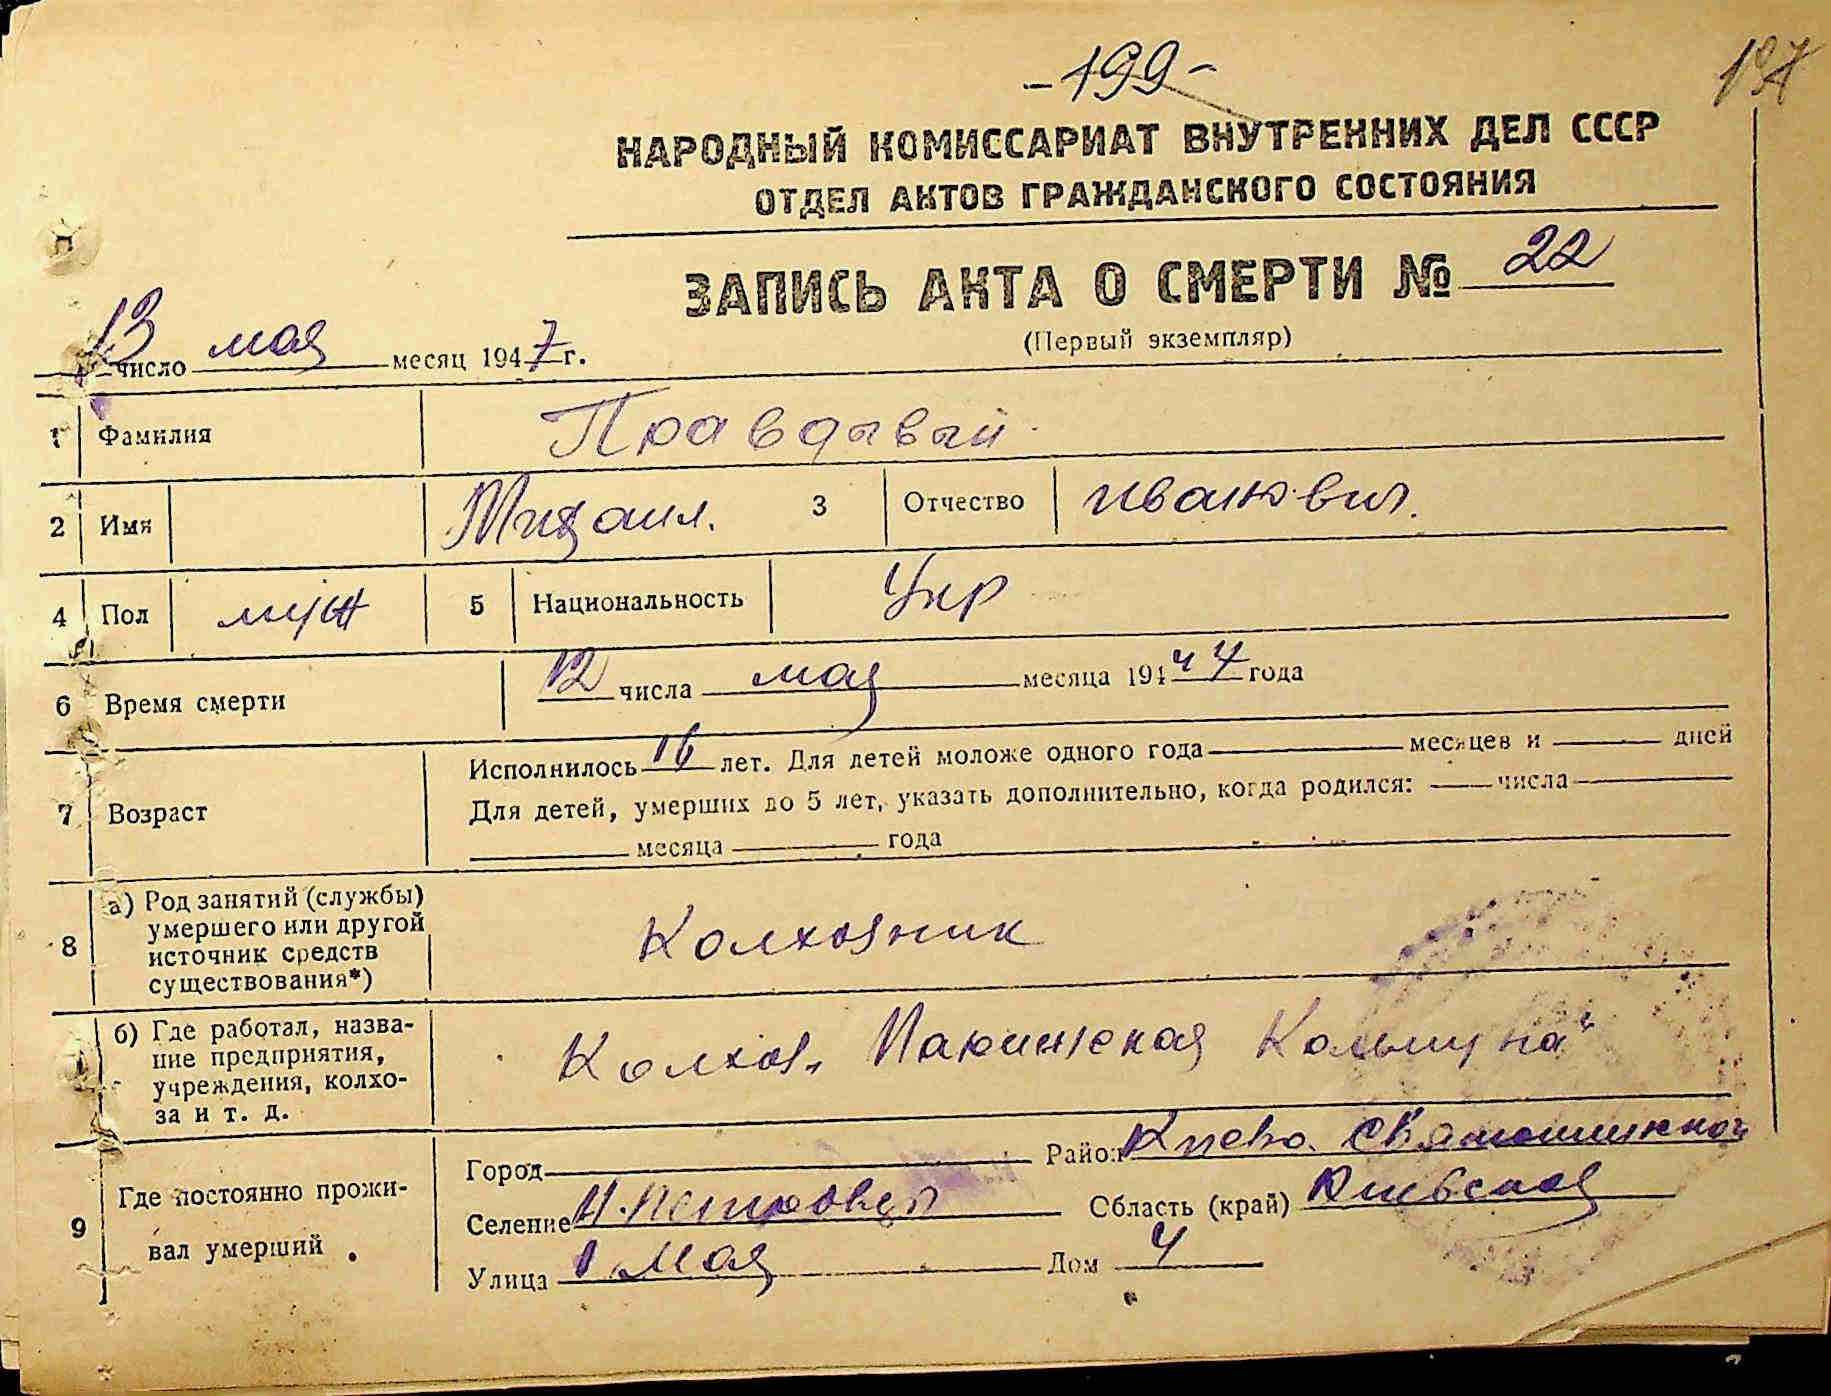 -199-
197
НАРОДНЫЙ КОМИССАРИАТ ВНУТРЕННИХ ДЕЛ СССР
ОТДЕЛ АКТОВ ГРАЖДАНСКОГО СОСТОЯНИЯ
ЗАПИСЬ АКТА О СМЕРТИ № 22
(Первый экземпляр)
13 число мая месяц 1947 г.
1 Фамилия Правдывый
2 Имя Михаил. 3 Отчество иванович.
4 Пол муж 5 Национальность Укр
6 Время смерти 12 числа мая месяца 194 47 года
Исполнилось 16 лет. Для детей моложе одного года месяцев и дней
7 Возраст Для детей, умерших до 5 лет, указать дополнительно, когда родился: числа
месяца года
а) Род занятий (службы)
умершего или другой
8 источник средств Колхозник
существования*)
б) Где работал, назва-
ние предприятия, Колхоз Парижская Коммуна"
учреждения, колхо-
за и т. д.
Город Район Киево. Святошинский
9 Где постоянно прожи- Селение Н. Петровцы Область (край) Киевская
вал умерший Улица 1 Мая Дом 4